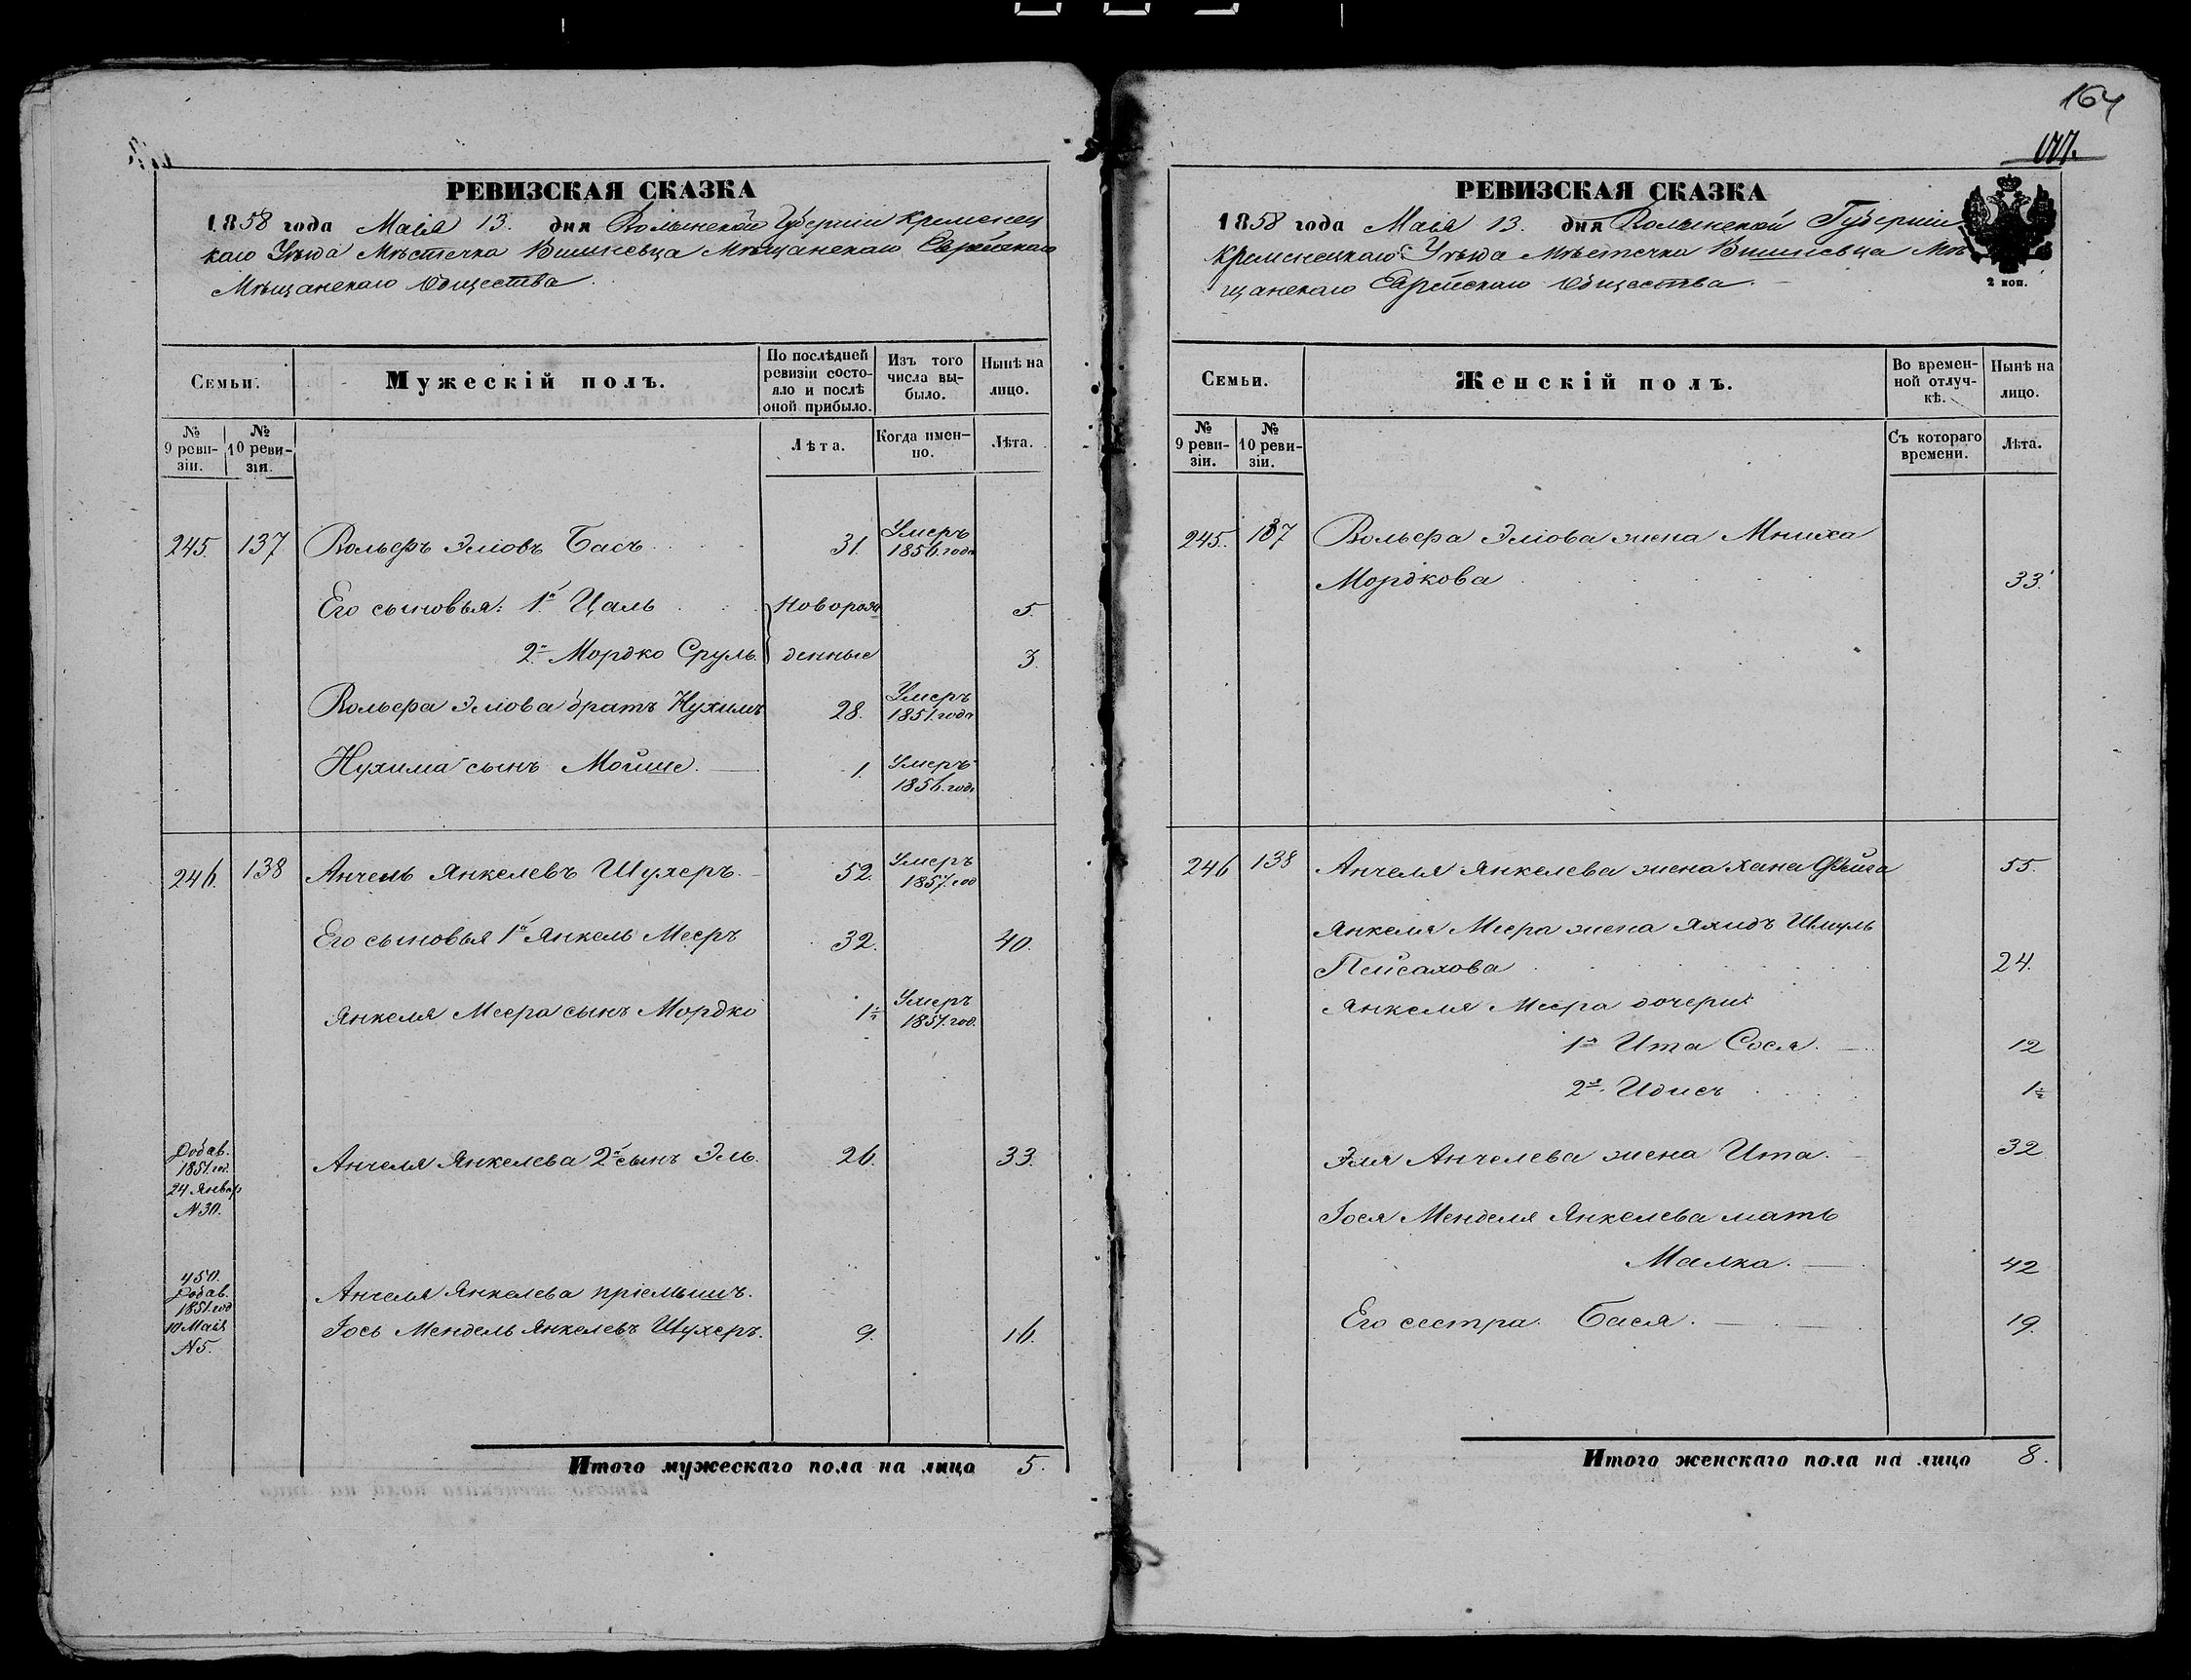 РЕВИЗСКАЯ СКАЗКА
1858 года Маія 13. дня Волынской Губерніи Кременец
каго Уѣзда Мѣстечка Вишневца Мѣщанскаго Еврейскаго
Мѣщанскаго Общества.
Семьи.
Мужескій полъ.
По послѣдней
ревизіи состо-
яло и послѣ
оной прибыло.
Изъ того
числа вы-
было.
Нынѣ на
лицо.
№
9 реви-
зіи.
№
10 реви-
зіи.
Лѣта.
Когда имен-
но.
Лѣта.
245. 137 Вольфъ Эліовъ Басъ 31. Умеръ
1856. года
Его сыновья: 1й Цаль Новорож 5.
2й Мордко Сруль. денные 3.
Вольфа Эліова братъ Нухимъ 28. Умеръ
1851. года
Нухима сынъ Мойше. 1. Умеръ
1856. года
246. 138 Анчель Янкелевъ Шухеръ. 52. Умеръ
1857. год
Его сыновья 1й Янкель Мееръ 32. 40.
Янкеля Меера сынъ Мордко 1½ Умеръ
1851. год.
Добав.
1851. год.
24 Январ
№ 30.
Анчеля Янкелева 2й сынъ Эль. 26. 33.
450.
Добав.
1851. год
10 Маія
№ 5.
Анчеля Янкелева пріемышъ.
Іось Мендель Янкелевъ Шухеръ. 9. 16.
Итого мужескаго пола на лицо 5.
164
РЕВИЗСКАЯ СКАЗКА
1858 года Маія 13. дня Волынской Губерніи
Кременецкаго Уѣзда Мѣстечка Вишневца Мѣ
щанскаго Еврейскаго Общества.
2 коп.
Семьи.
Женскій полъ.
Во времен-
ной отлуч-
кѣ.
Нынѣ на
лицо.
№
9 реви-
зіи.
№
10 реви-
зіи.
Съ котораго
времени.
Лѣта.
245. 137 Вольфа Эліова жена Мниха
Мордкова 33.
246 138 Анчеля Янкелева жена Хана Фейга 55.
Янкеля Меера жена Яхидъ Шмуль
Пейсахова 24.
Янкеля Меера дочери:
1я Ита Сося. 12
2я Идисъ 1½
Эля Анчелева жена Ита. 32
Іося Менделя Янкелева мать
Малка. 42
Его сестра Бася. 19.
Итого женскаго пола на лицо 8.